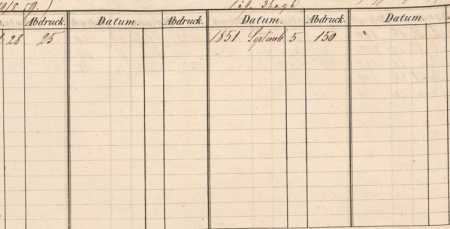 Abdruck. Datum. Abdruck. Datum. Abdruck. Datum.
28 25 1851 September 5 150